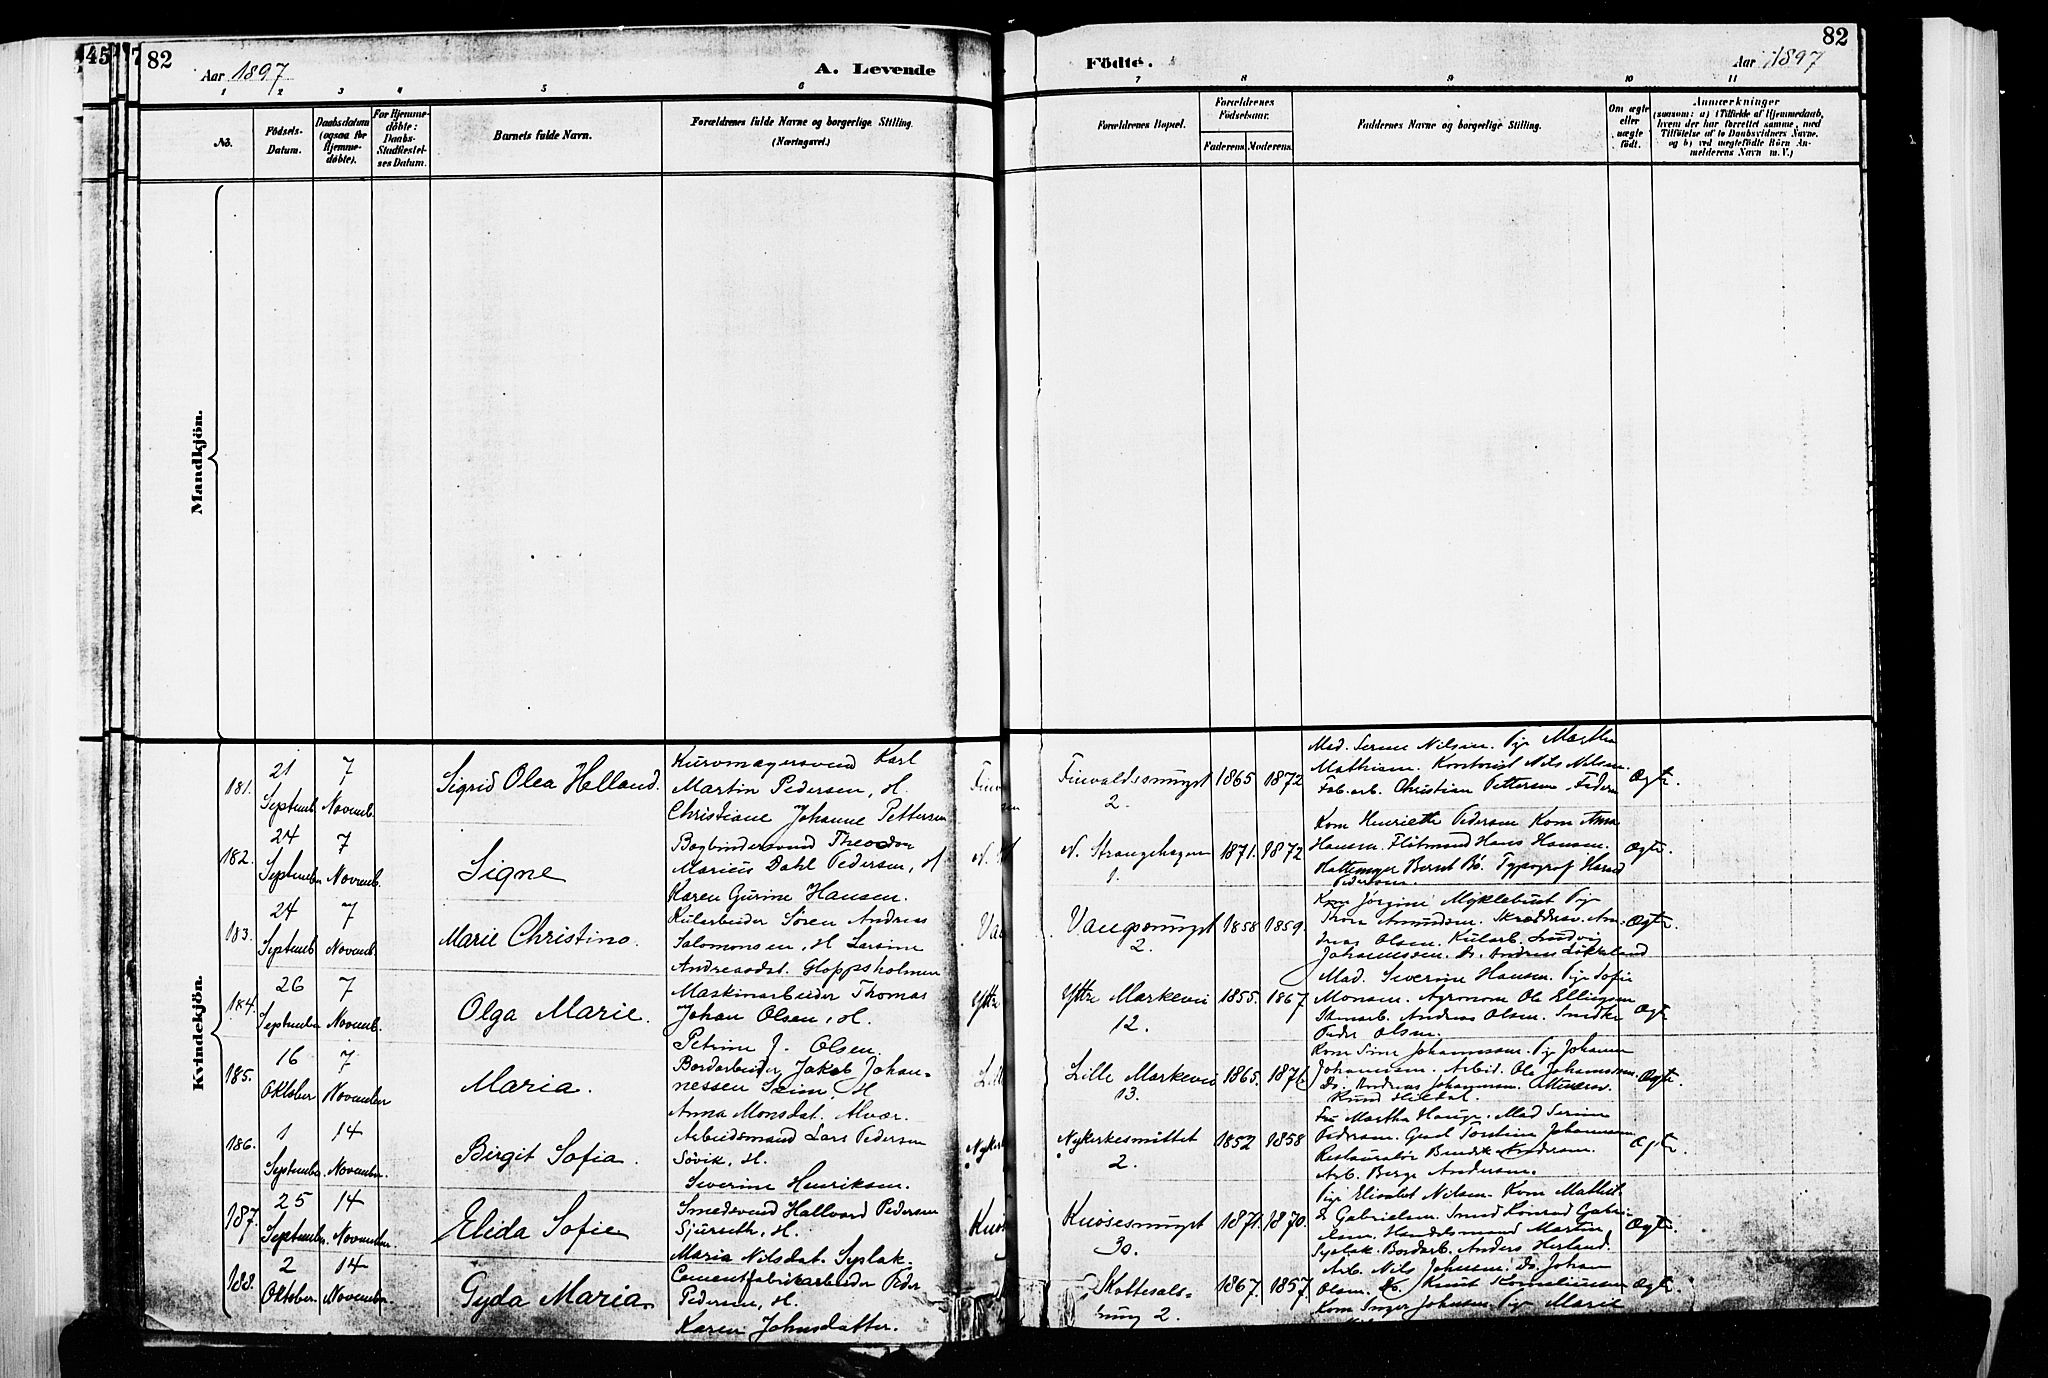 82
Aar 1897
A. Levende
Födte.
Aar 1897
82
1 2 3 4 5 6 7 8 9 10 11
No.
Födsels-
Datum.
Daabsdatum
(ogsaa for
Hjemme-
döbte).
For Hjemme-
döbte:
Daabs-
Stadfæstel-
ses Datum.
Barnets fulde Navn.
Forældrenes fulde Navne og borgerlige Stilling.
(Næringsvei.)
Forældrenes Bopæl.
Forældrenes
Födselsaar.
Faderens. Moderens.
Faddernes Navne og borgerlige Stilling.
Om ægte
eller
uægte
födt.
Anmærkninger
(saasom: a) i Tilfælde af Hjemmedaab,
hvem der har forrettet samme, med
Tilföielse af to Daabsvidners Navne.
og b) ved uægtefödte Börn An-
melderens Navn m. V.)
Mandkjön.
Kvindekjön.
181.
21
Septemb.
7
Novemb.
Sigrid Olea Helland.
Kurvmagersvend Karl
Martin Pedersen, H.
Christiane Johanne Pettersen
2.
1865 1872
Mad. Serine Nilsen. Pge Martha
Mathisen. Kontorist Nils Nilsen.
Fab.arb. Christian Pettersen
Ægte.
182.
24
September
7
Novemb.
Signe
Bogbindersvend Theodor
Marius Dahl Pedersen, H
Karen Gurine Hansen.
N. Strangehagen
1.
1871. 1872
Kom Henriette Pedersen Kone Anna
Hansen. Hans Hansen.
Hattemager Bernt Bö. Typograf Harald
Pedersen.
Ægte.
183.
24
Septemb
7
Novemb.
Marie Christine.
Kularbeider Sören Andreas
Salomonsen, H Larsine
Andreasdat. Gloppsholmen
Vaagsmuget
2.
1858 1859.
Kone Jörgine Myklebust Pge
Thora Amundsen. Skrædders. An-
dreas Olsen. Kularb. Ludvig
Johannessen. Ds. Andreas
Ægte.
184.
26
September
7
Novemb.
Olga Marie.
Maskinarbeider Thomas
Johan Olsen, H.
Petrine J. Olsen.
Yttre Markevei
12.
1855. 1867
Mad. Severine Hansen. Pge Sofie
Monsen. Agronom Ole Ellingsen
Stenarb. Andreas Olsen. Smed
Peder Olsen.
Ægte
185.
16
Oktober
7
November
Maria.
Bordarbeider Jakob Johan-
nessen Seim, H
Anna Monsdat. Alvær.
Lille Markevei
13.
1865. 1871
Kone Sine Johannessen. Pge Johanne
Johannesen. Arbeid. Ole Johannessen.
Ds. Andreas Johannesen.
Knud Hildal.
Ægte.
186.
1
Septembr.
14
Novembr.
Birgit Sofia.
Arbeidsmand Lars Pedersen
Sövik, H.
Severine Henriksen.
Nykirkesmuttet
2.
1852 1858
Fru Martha Hauge. Mad Serine
Pedersen. Johannesen
Restauratör Bendik Andersen.
Arb. Berge Andersen.
Ægte.
187.
25
September.
14
November.
Elida Sofie
Smedsvend Hallvard Pedersen
Sjurseth, H.
Maria Nilsdat. Syslak.
Knösesmuget
30.
1871. 1870.
Pge Elisabet Nilsen. Kone Mathil-
de Gabrielsen. Smed Konrad Gabri-
elsen. Handelsmand Martin
Syslak. Bordarb. Anders Herland.
Ægte.
188.
2
Oktober.
14
November.
Gyda Maria.
Cementfabrikarbeider Peder
Pedersen, H.
Karen Johnsdatter.
Skottesals-
smug 2.
1867. 1857.
Arb. Nils Johnsen. Ds. Johan
Olsen. Ds. Knut Korneliussen
Kone Inger Johnsen. Pge Marie
Ægte.